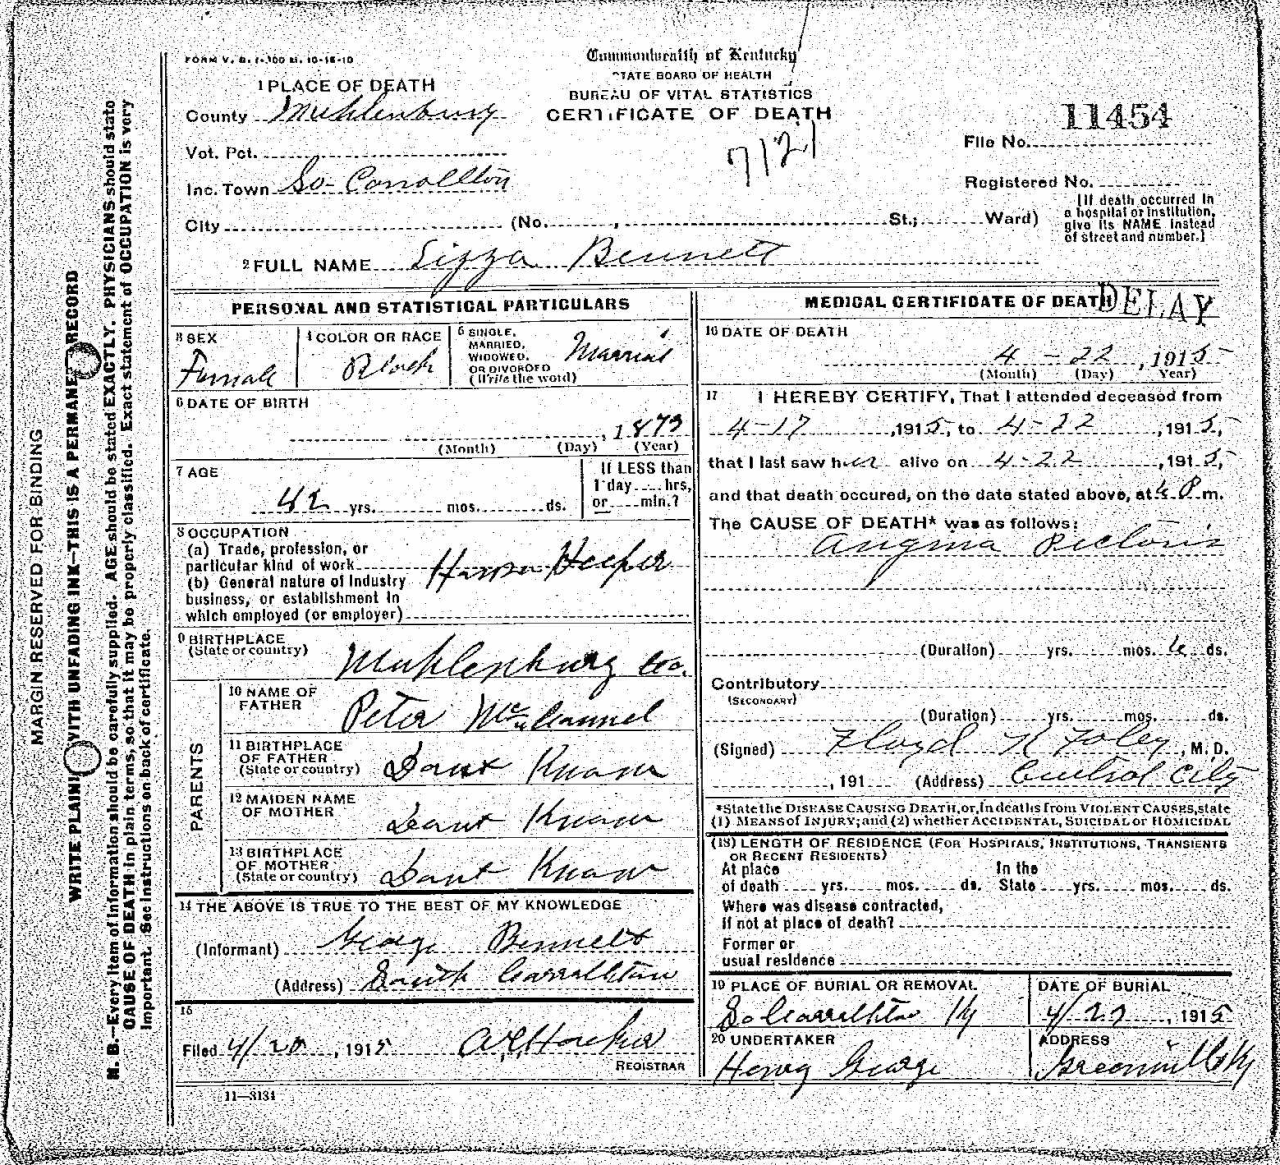 FORM V. S. 1-100 M. 10-18-10
Commonwealth of Kentucky
STATE BOARD OF HEALTH
BUREAU OF VITAL STATISTICS
CERTIFICATE OF DEATH
1 PLACE OF DEATH
County Muhlenburg
Vot. Pct.
Inc. Town So Carrollton
City (No. , St.; Ward)
11454
File No.
Registered No.
[If death occurred in
a hospital or institution,
give its NAME instead
of street and number.]
7121
2 FULL NAME Lizza Bennett
PERSONAL AND STATISTICAL PARTICULARS
3 SEX
Female
4 COLOR OR RACE
Black
5 SINGLE,
MARRIED,
WIDOWED,
OR DIVORCED
(Write the word)
Married
6 DATE OF BIRTH
, 1873
(Month) (Day) (Year)
7 AGE
42 yrs. mos. ds.
If LESS than
1 day hrs,
or min.?
8 OCCUPATION
(a) Trade, profession, or
particular kind of work House Keeper
(b) General nature of Industry
business, or establishment in
which employed (or employer)
9 BIRTHPLACE
(State or country) Muhlenburg Co.
PARENTS
10 NAME OF
FATHER Peter
11 BIRTHPLACE
OF FATHER
(State or country) Dont Know
12 MAIDEN NAME
OF MOTHER Dont Know
13 BIRTHPLACE
OF MOTHER
(State or country) Dont Know
14 THE ABOVE IS TRUE TO THE BEST OF MY KNOWLEDGE
(Informant) George Bennett
(Address) South Carrollton
15
Filed 4/28, 1915
REGISTRAR
11—3134
MEDICAL CERTIFICATE OF DEATH
DELAY
16 DATE OF DEATH
4 - 22, 1915
(Month) (Day) Year)
17 I HEREBY CERTIFY, That I attended deceased from
4-17, 1915, to 4-22, 1915,
that I last saw her alive on 4-22, 1915,
and that death occured, on the date stated above, at P m.
The CAUSE OF DEATH* was as follows:
Angina Pectoris
(Duration) yrs. mos. 6 ds.
Contributory
(SECONDARY)
(Duration) yrs. mos. ds.
(Signed) Floyd N Foley, M.D.
, 191 (Address) Central City
*State the DISEASE CAUSING DEATH, or, in deaths from VIOLENT CAUSES, state
(1) MEANS of INJURY; and (2) whether ACCIDENTAL, SUICIDAL or HOMICIDAL
(18) LENGTH OF RESIDENCE (FOR HOSPITALS, INSTITUTIONS, TRANSIENTS
OR RECENT RESIDENTS)
At place In the
of death yrs. mos. ds. State yrs. mos. ds.
Where was disease contracted,
If not at place of death?
Former or
usual residence
19 PLACE OF BURIAL OR REMOVAL
So Carrollton Ky
DATE OF BURIAL
4/23, 1915
20 UNDERTAKER
Henry George
ADDRESS
Greenville Ky
MARGIN RESERVED FOR BINDING
WRITE PLAINLY WITH UNFADING INK—THIS IS A PERMANENT RECORD
N. B.—Every item of information should be carefully supplied. AGE should be stated EXACTLY. PHYSICIANS should state
CAUSE OF DEATH in plain terms, so that it may be properly classified. Exact statement of OCCUPATION is very
important. See instructions on back of certificate.